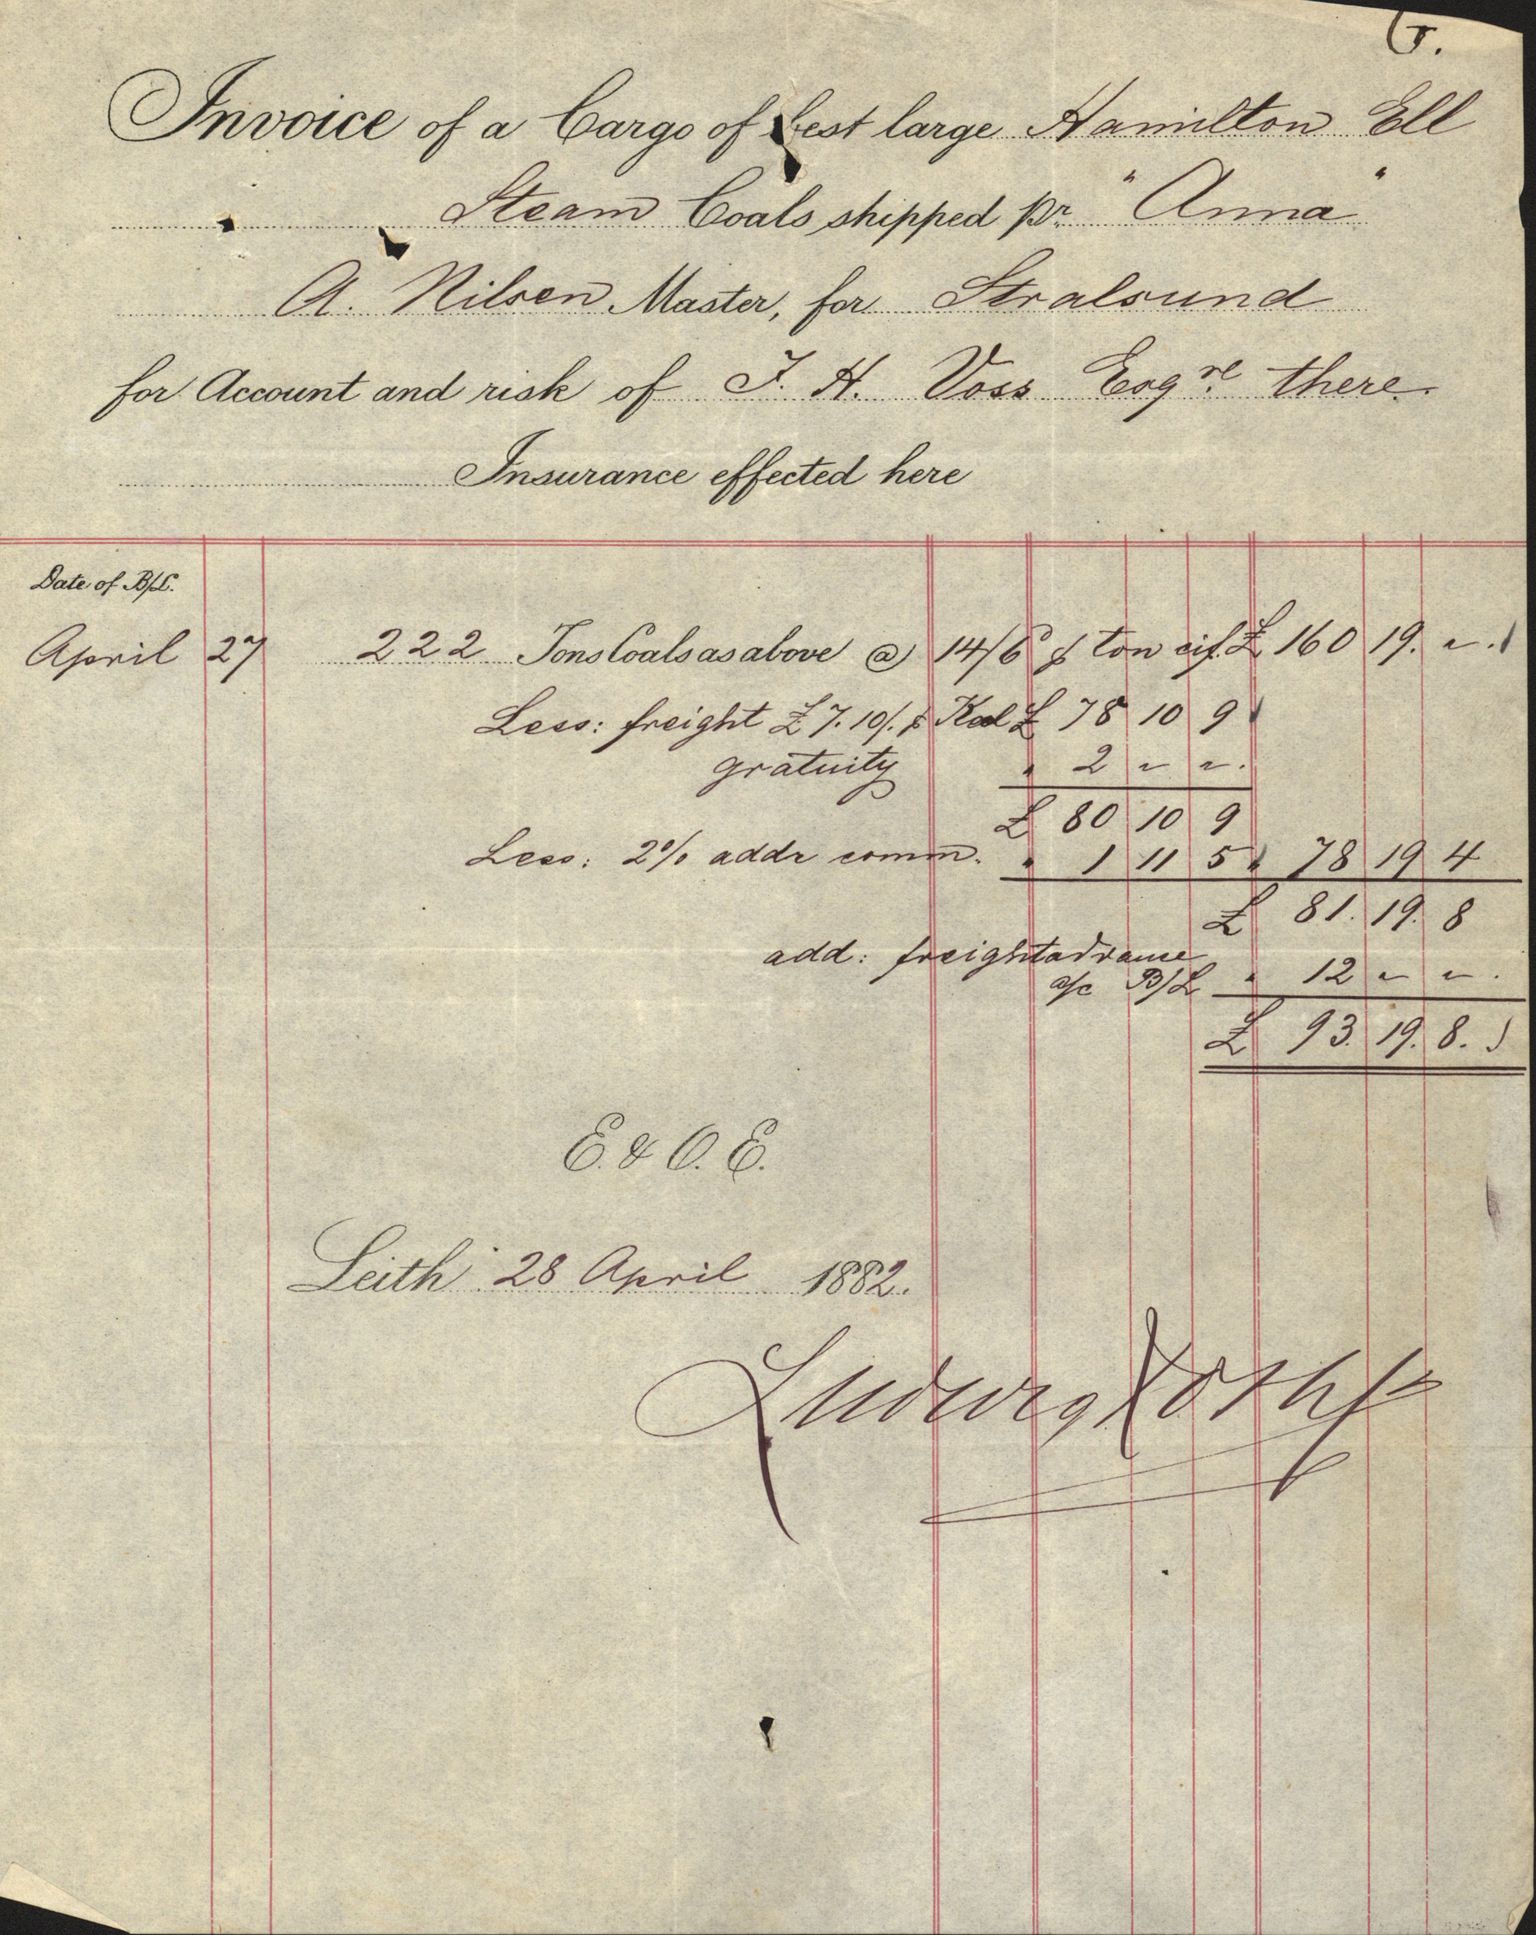 G.
Invoice of a Cargo of best large Hamilton Ell
Steam Coals shipped pr "Anna"
A. Nilsen Master, for Stralsund
for Account and risk of J. H. Voss Esqre there.
Insurance effected here
Date of B/L.
April 27 222 Tons Coals as above @ 14/6 ⅌ ton cif. £ 160 19. " .
Less: freight £ 7. 10/. ⅌ Keel £ 78 10 9
gratuity " 2 " " .
£ 80 10 9
Less: 2% addr comm. " 1 11 5 " 78 19 4
£ 81. 19. 8
add: freightadvance
a/c B/L " 12 " " .
£ 93. 19. 8.
E. & O. E.
Leith 28 April 1882.
Ludwig